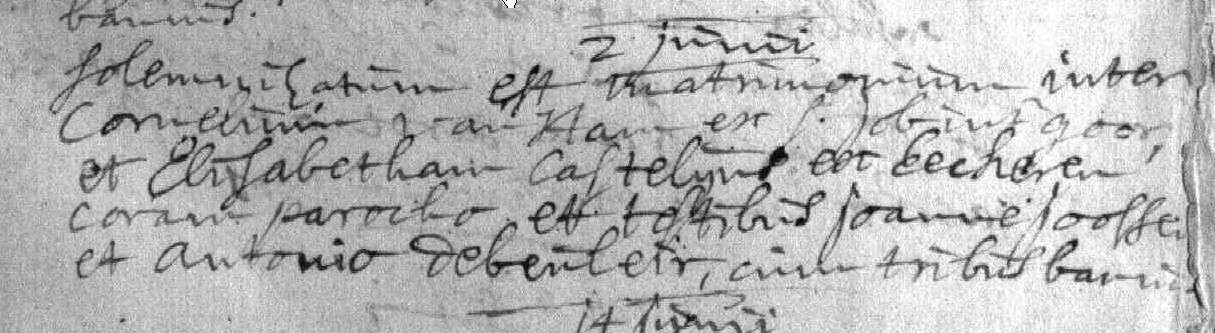 bannis.
2 junii
solemnizatum est matrimonium inter
Cornelium van Ham ex S. Job int goor,
et Elisabetham Castelyns ex eecheren
coram parocho et testibus Joanne Joossen
et Antonio debeuleir, cum tribus bannis
14 Junii